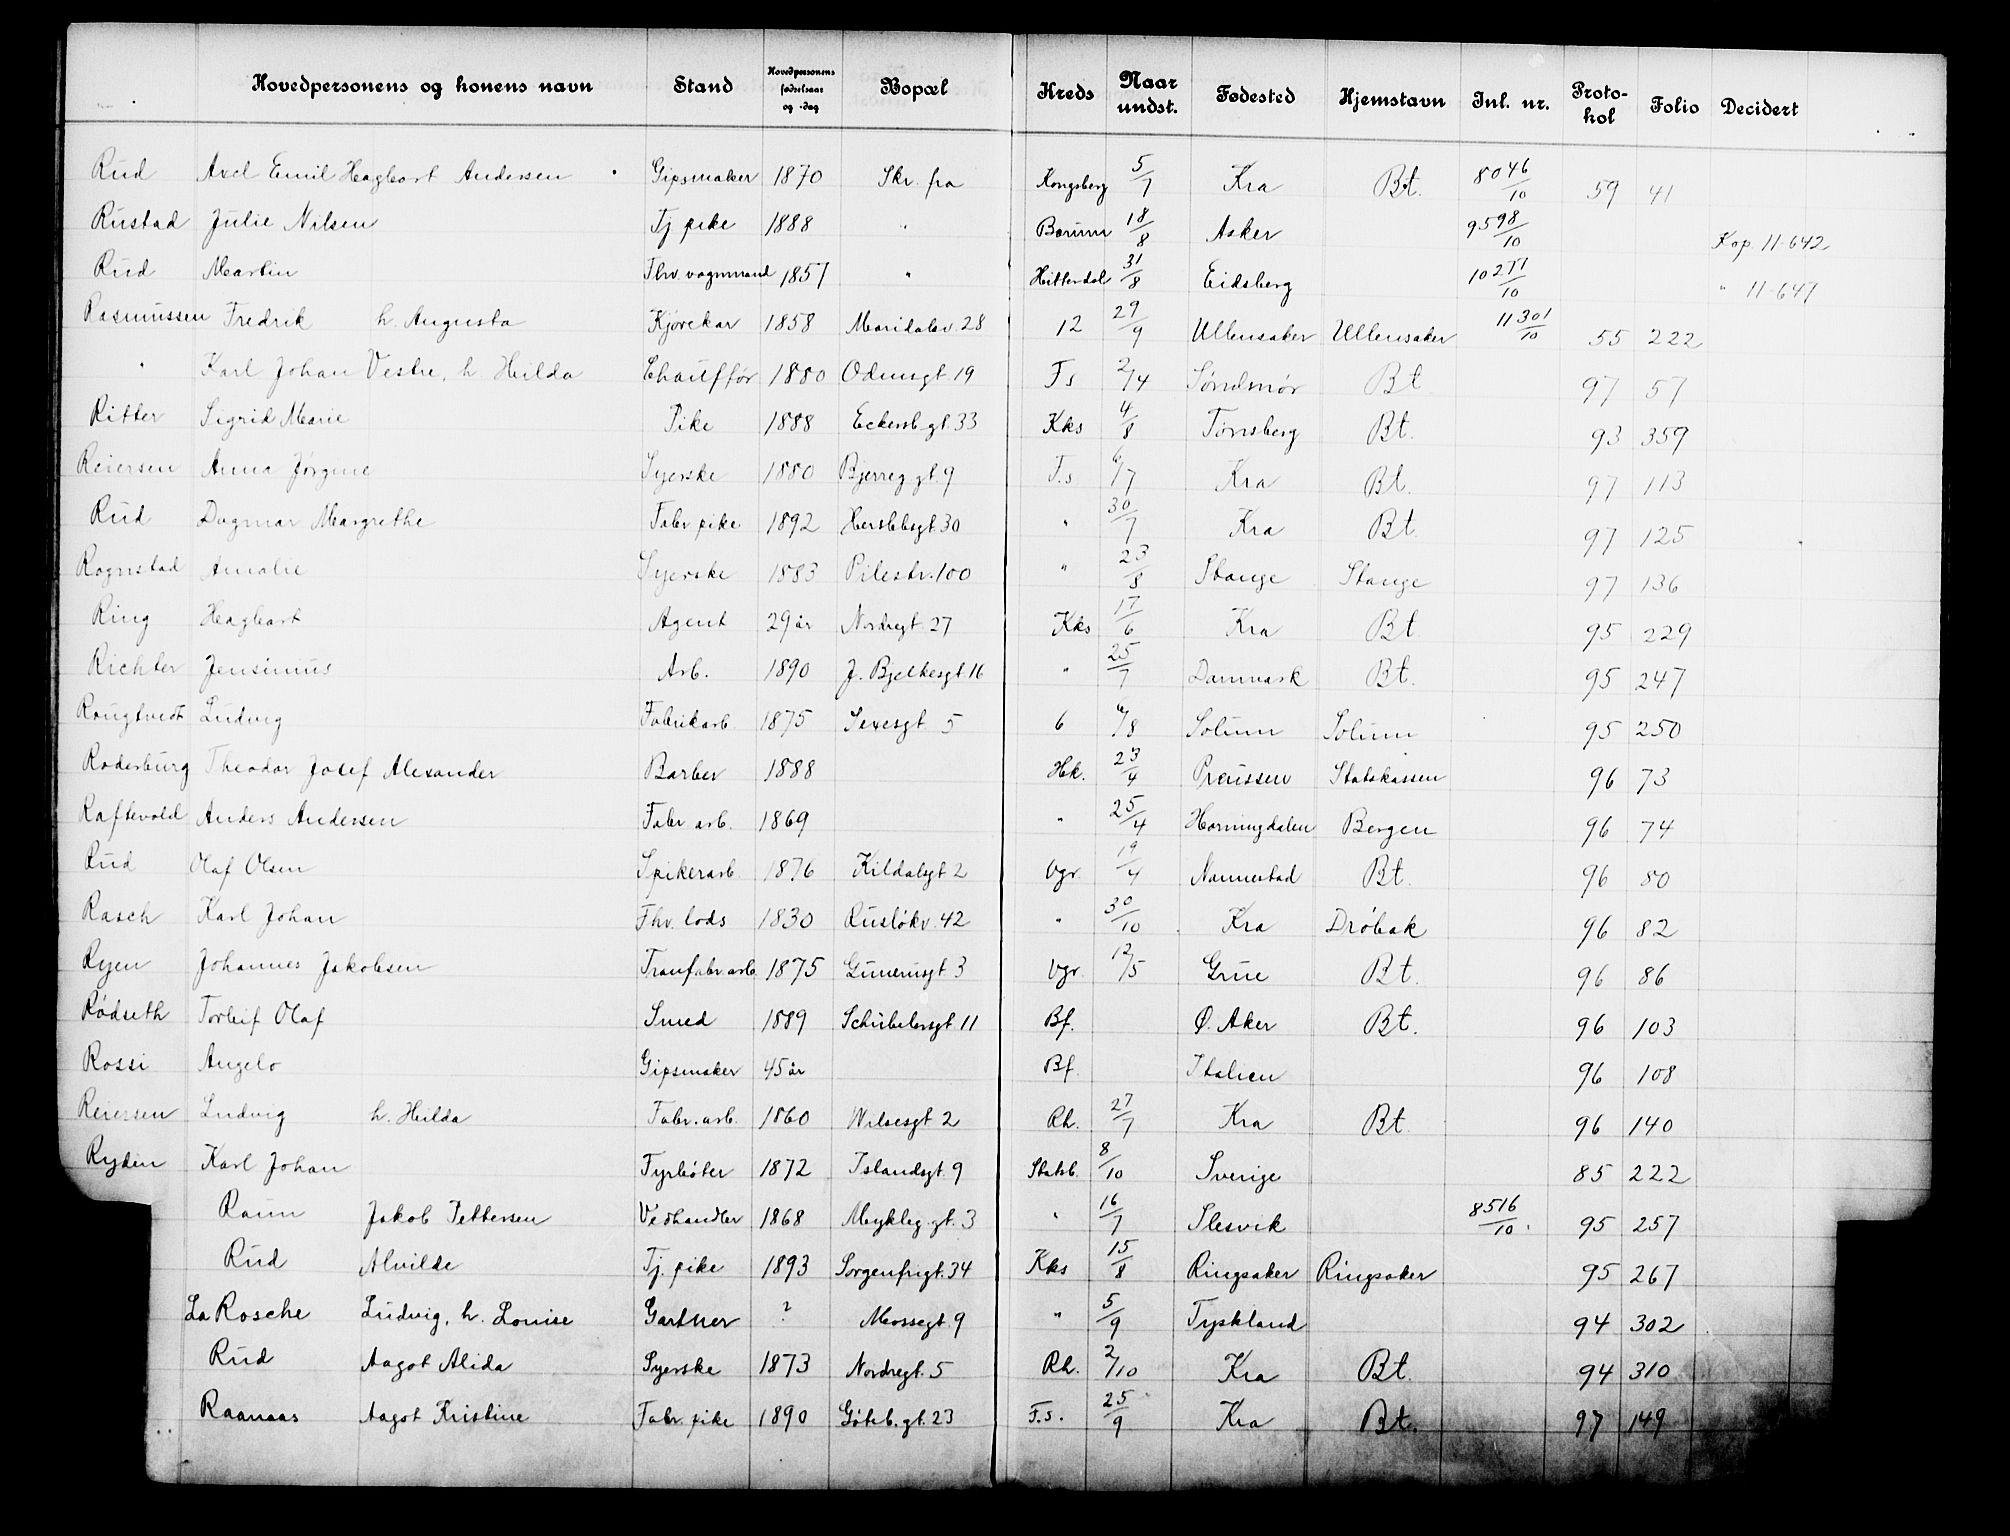 Hovedpersonens og konens navn Stand Hovedpersonens fødselsaar og -dag Bopæl Kreds Naar undst. Fødested Hjemstavn Inl. nr. Protokol Folio Decidert
Rud Axel Emil Hagbart Andersen Gipsmaker 1870 Skr. fra Kongsberg 5/7 Kra Bt. 8046/10 59 41
Rustad Julie Nilsen Tj pike 1888 " Bærum 18/8 Asker 9598/10 Kop. 11-642
Rud Martin Fhv. vognmand 1857 " Hitterdal 31/8 Eidsberg 10277/10 " 11-647
Rasmussen Fredrik h. Augusta Kjørekar 1858 Maridalsv. 28 12 29/9 Ullensaker Ullensaker 11301/10 55 222
" Karl Johan Vestre, h Hilda Chauffør 1880 Odinsgt. 19 Fs 2/4 Søndmør Bt 97 57
Ritter Sigrid Marie Pike 1888 Eckersb. gt. 33 Kks 4/8 Tønsberg Bt. 93 359
Reiersen Anna Jørgine Syerske 1880 Bjerreg. gt. 9 F.s 6/7 Kra Bt. 97 113
Rud Dagmar Margrethe Fabr pike 1892 Herslebsgt. 30 " 30/7 Kra Bt. 97 125
Rognstad Amalie Syerske 1883 Pilestr. 100 " 23/8 Stange Stange 97 136
Ring Hagbart Agent 29 år Nordregt. 27 Kks 17/6 Kra Bt 95 229
Richter Jensinius Arb. 1890 J. Bjelkesgt. 16 " 25/7 Danmark Bt. 95 247
Raugtvedt Ludvig Fabrikarb. 1875 Sexesgt. 5 6 6/8 Solum Solum 95 250
Roderburg Theodor Josef Alexander Barber 1888 Hk. 23/4 Preussen Statskassen 96 73
Raftevold Anders Andersen Fabr arb. 1869 " 25/4 Horningdalen Bergen 96 74
Rud Olaf Olsen Spikerarb. 1876 Kildalsgt 2 Vgr. 19/4 Nannestad Bt. 96 80
Rasch Karl Johan Fhv. lods 1830 Rusløkv. 42 " 30/10 Kra Drøbak 96 82
Ryen Johannes Jakobsen Tranfabr. arb. 1875 Gunerusgt 3 Vgr. 12/5 Grue Bt. 96 86
Rødseth Torleif Olaf Smed 1889 Schübelersgt 11 Bf. Ø. Aker Bt. 96 103
Rossi Angelo Gipsmaker 45 år Bf. Italien 96 108
Reiersen Ludvig h. Hilda Fabr. arb. 1860 Nilsesgt 2 Rh. 27/7 Kra Bt. 96 140
Ryden Karl Johan Fyrbøter 1872 Islandsgt. 9 Statsb. 8/10 Sverige 85 222
Raun Jakob Pettersen Vedhandler 1868 Mykleg. gt. 3 " 16/7 Slesvik 8516/10 95 257
Rud Alvilde Tj. pike 1893 Sorgenfrigt. 34 Kks 15/8 Ringsaker Ringsaker 95 267
La Rosche Ludvig, h. Louise Gartner ? Mossegt. 9 " 5/9 Tyskland 94 302
Rud Aagot Alida Syerske 1873 Nordregt. 5 Rh. 2/10 Kra Bt. 94 310
Raanaas Aagot Kristine Fabr. pike 1890 Gøteb. gt. 23 F.s. 25/9 Kra Bt. 97 149